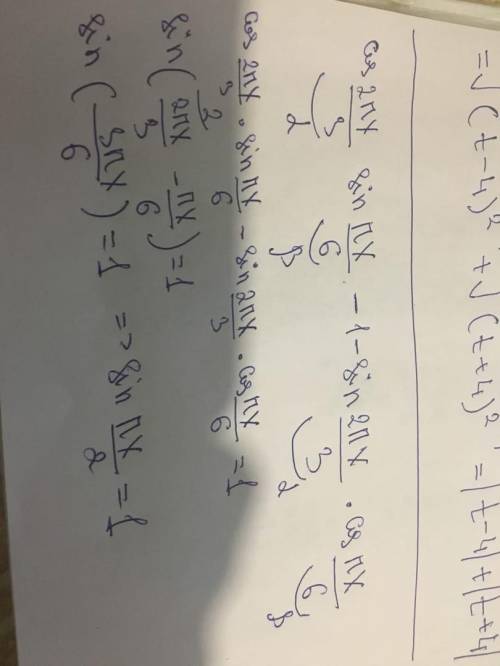 = √(t-4)² + √(t+4)² = |t-4| + |t+4|
cos 2πx/3 sin πx/6 - 1 - sin 2πx/3 · cos πx/6
α β α β
cos 2πx/3 · sin πx/6 - sin 2πx/3 · cos πx/6 = 1
sin(2πx/3 - πx/6) = 1
sin(3πx/6) = 1 => sin πx/2 = 1